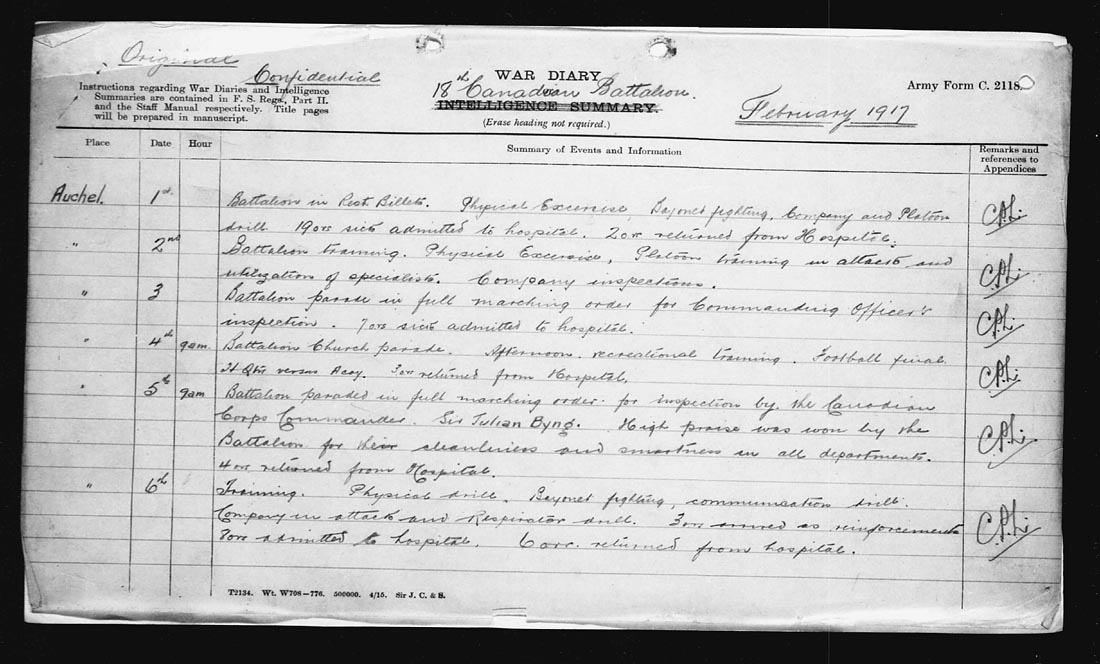 Original
Confidential
Instructions regarding War Diaries and Intelligence
Summaries are contained in F. S. Regs., Part II.
and the Staff Manual respectively. Title pages
will be prepared in manuscript.
WAR DIARY
18th Canadian Battalion.
INTELLIGENCE SUMMARY.
(Erase heading not required.)
Army Form C. 2118.
February 1917
Place Date Hour Summary of Events and Information Remarks and references to Appendices
Auchel. 1st Battalion in Rest Billets. Physical Excersise, Bayonet fighting, Company and Platoon
drill. 19 ors sick admitted to hospital. 2 ors returned from Hospital.
" 2nd Battalion training. Physical Excersise, Platoon training in attack and
utilization of specialists. Company inspections.
" 3 Battalion parade in full marching order for Commanding Officer's
inspection. 7 ors sick admitted to hospital.
" 4th 9am. Battalion Church parade. Afternoon recreational training. Football final.
Hd Qtrs versus A coy. 3 ors returned from Hospital.
" 5th 9am Battalion paraded in full marching order for inspection by the Canadian
Corps Commander. Sir Julian Byng. High praise was won by the
Battalion for their cleanliness and smartness in all departments.
4 ors returned from Hospital.
" 6th Training. Physical drill. Bayonet fighting, communication drill.
Company in attack and Respirator drill. 3 ors arrived as reinforcements
7 ors admitted to hospital. 6 ors. returned from hospital.
T2134. Wt. W708—776. 500000. 4/15. Sir J. C. & S.